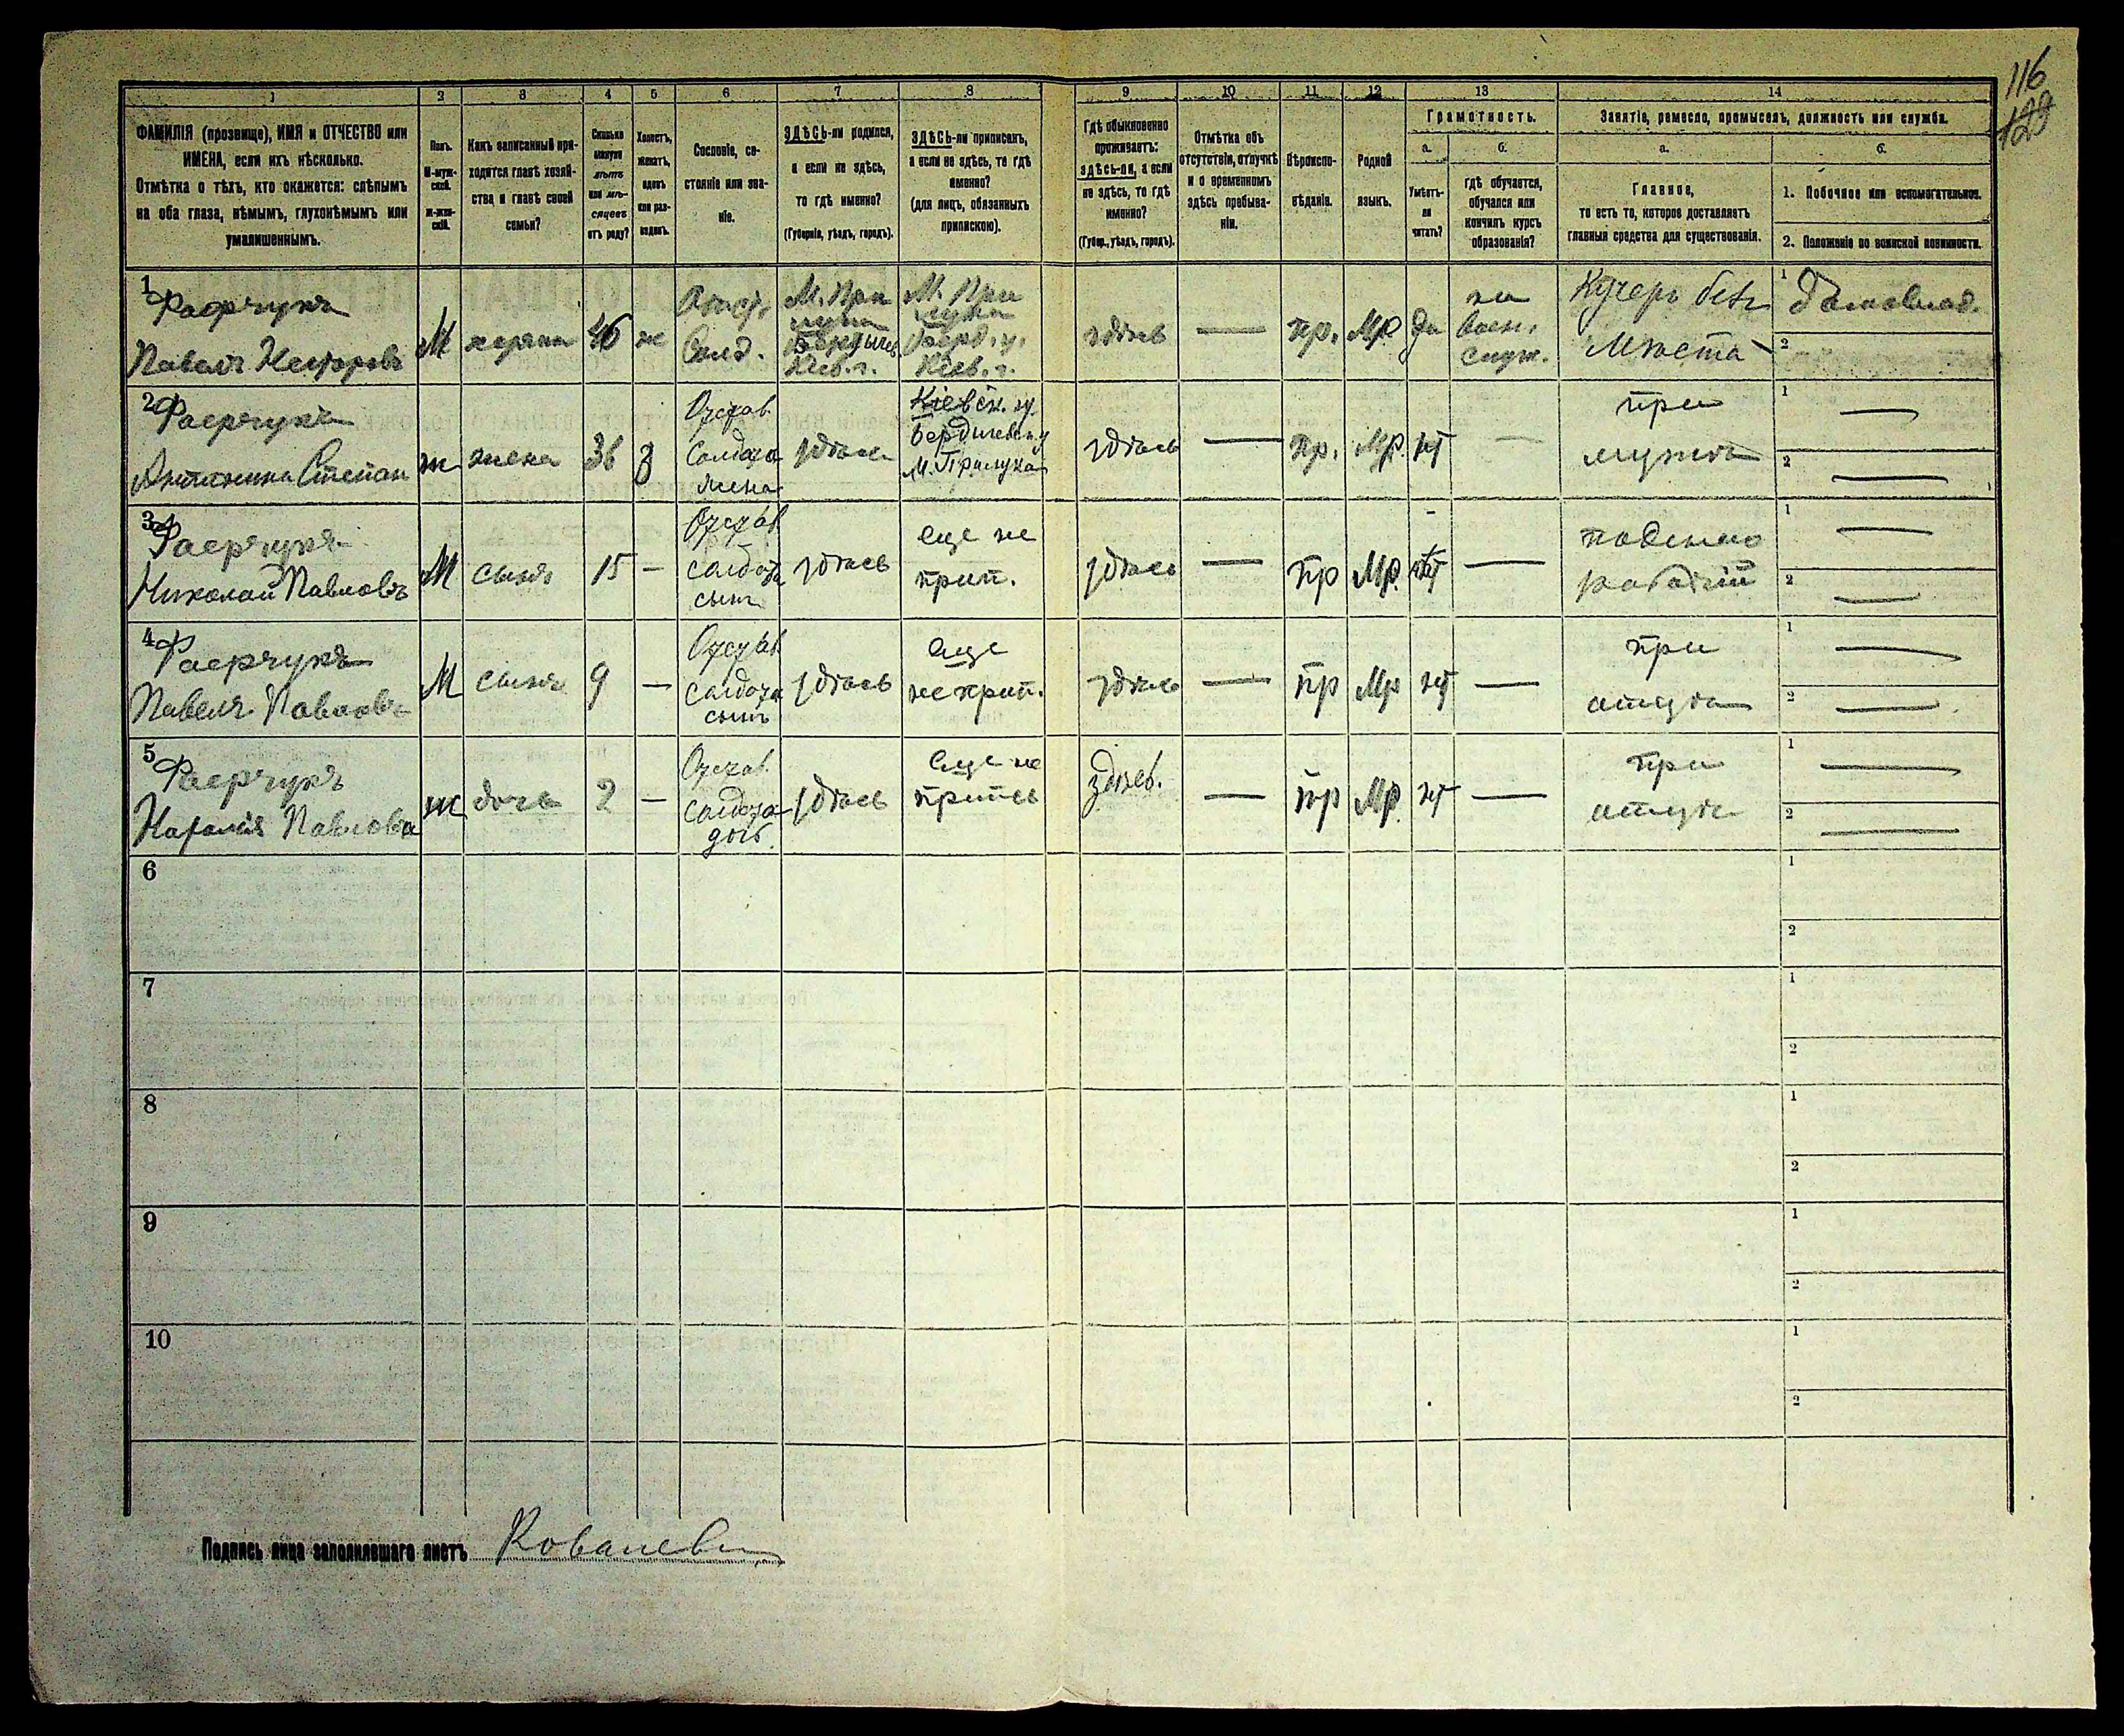 116
129
1 2 3 4 5 6 7 8 9 10 11 12 13 14
ФАМИЛІЯ (прозвище), ИМЯ и ОТЧЕСТВО или
ИМЕНА, если ихъ нѣсколько.
Отмѣтка о тѣхъ, кто окажется: слѣпымъ
на оба глаза, нѣмымъ, глухонѣмымъ или
умалишеннымъ.
Полъ.
М-муж-
ской.
ж-жен-
скій.
Какъ записанный при-
ходится главѣ хозяй-
ства и главѣ своей
семьи?
Сколько
минуло
лѣтъ
или мѣ-
сяцевъ
отъ роду?
Холостъ,
женатъ,
вдовъ
или раз-
веденъ.
Сословіе, со-
стояніе или зва-
ніе.
ЗДѢСЬ-ли родился,
а если не здѣсь,
то гдѣ именно?
(Губернія, уѣздъ, городъ).
ЗДѢСЬ-ли приписанъ,
а если не здѣсь, то гдѣ
именно?
(для лицъ, обязанныхъ
припискою).
Гдѣ обыкновенно
проживаетъ:
здѣсь-ли, а если
не здѣсь, то гдѣ
именно?
(Губер., уѣздъ, городъ).
Отмѣтка объ
отсутствіи, отлучкѣ
и о временномъ
здѣсь пребыва-
ніи.
Вѣроиспо-
вѣданіе.
Родной
языкъ.
Грамотность.
а.
Умѣетъ-
ли
читать?
б.
гдѣ обучается,
обучался или
кончилъ курсъ
образованія?
Занятіе, ремесло, промыселъ, должность или служба.
а.
Главное,
то есть то, которое доставляетъ
главныя средства для существованія.
б.
1. Побочное или вспомогательное.
2. Положеніе по воинской повинности.
1
Павелъ
М
46
ж
М. При
лука
Бердичев
Кіев. г.
М. При
лука
Берд. у.
Кіев. г.
здѣсь
—
пр.
Мр
да
на
воен.
служ.
Кучеръ безъ
мѣста
1 Домовлад.
2
2
Степан
ж
жена
36
З
Отстав.
Солдата
жена
здѣсь
Кіевск. гу.
Бердичевск. у
М. Прилука
здѣсь
—
Пр.
Мр.
нѣт
—
при
мужѣ
1 —
2 —
3
Николай Павловъ
М
сынъ
15
—
Отстав
солдата
сынъ
здѣсь
еще не
прип.
здѣсь
—
пр
Мр.
нѣт
—
поденно
рабочій
1 —
2 —
4
Павелъ Павловъ
М
сынъ
9
—
Отстав
солдата
сынъ
здѣсь
еще
не прип.
здѣсь
—
пр
Мр
нѣт
—
при
отцѣ
1 —
2 —
5
Наталія Павлова
ж
дочь
2
—
Отстав.
солдата
доч.
здѣсь
еще не
припсь
здѣсь.
—
пр
Мр.
нѣт
—
при
отцѣ
1 —
2 —
6
1
2
7
1
2
8
1
2
9
1
2
10
1
2
Подпись лица заполнявшаго листъ